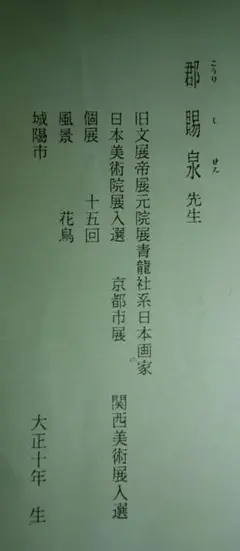 郡賜泉先生
こうりしせん
旧文展帝展元院展青龍社系日本画家
日本美術院展入選　京都市展　関西美術展入選
個展　十五回
風景　花鳥
城陽市　大正十年生